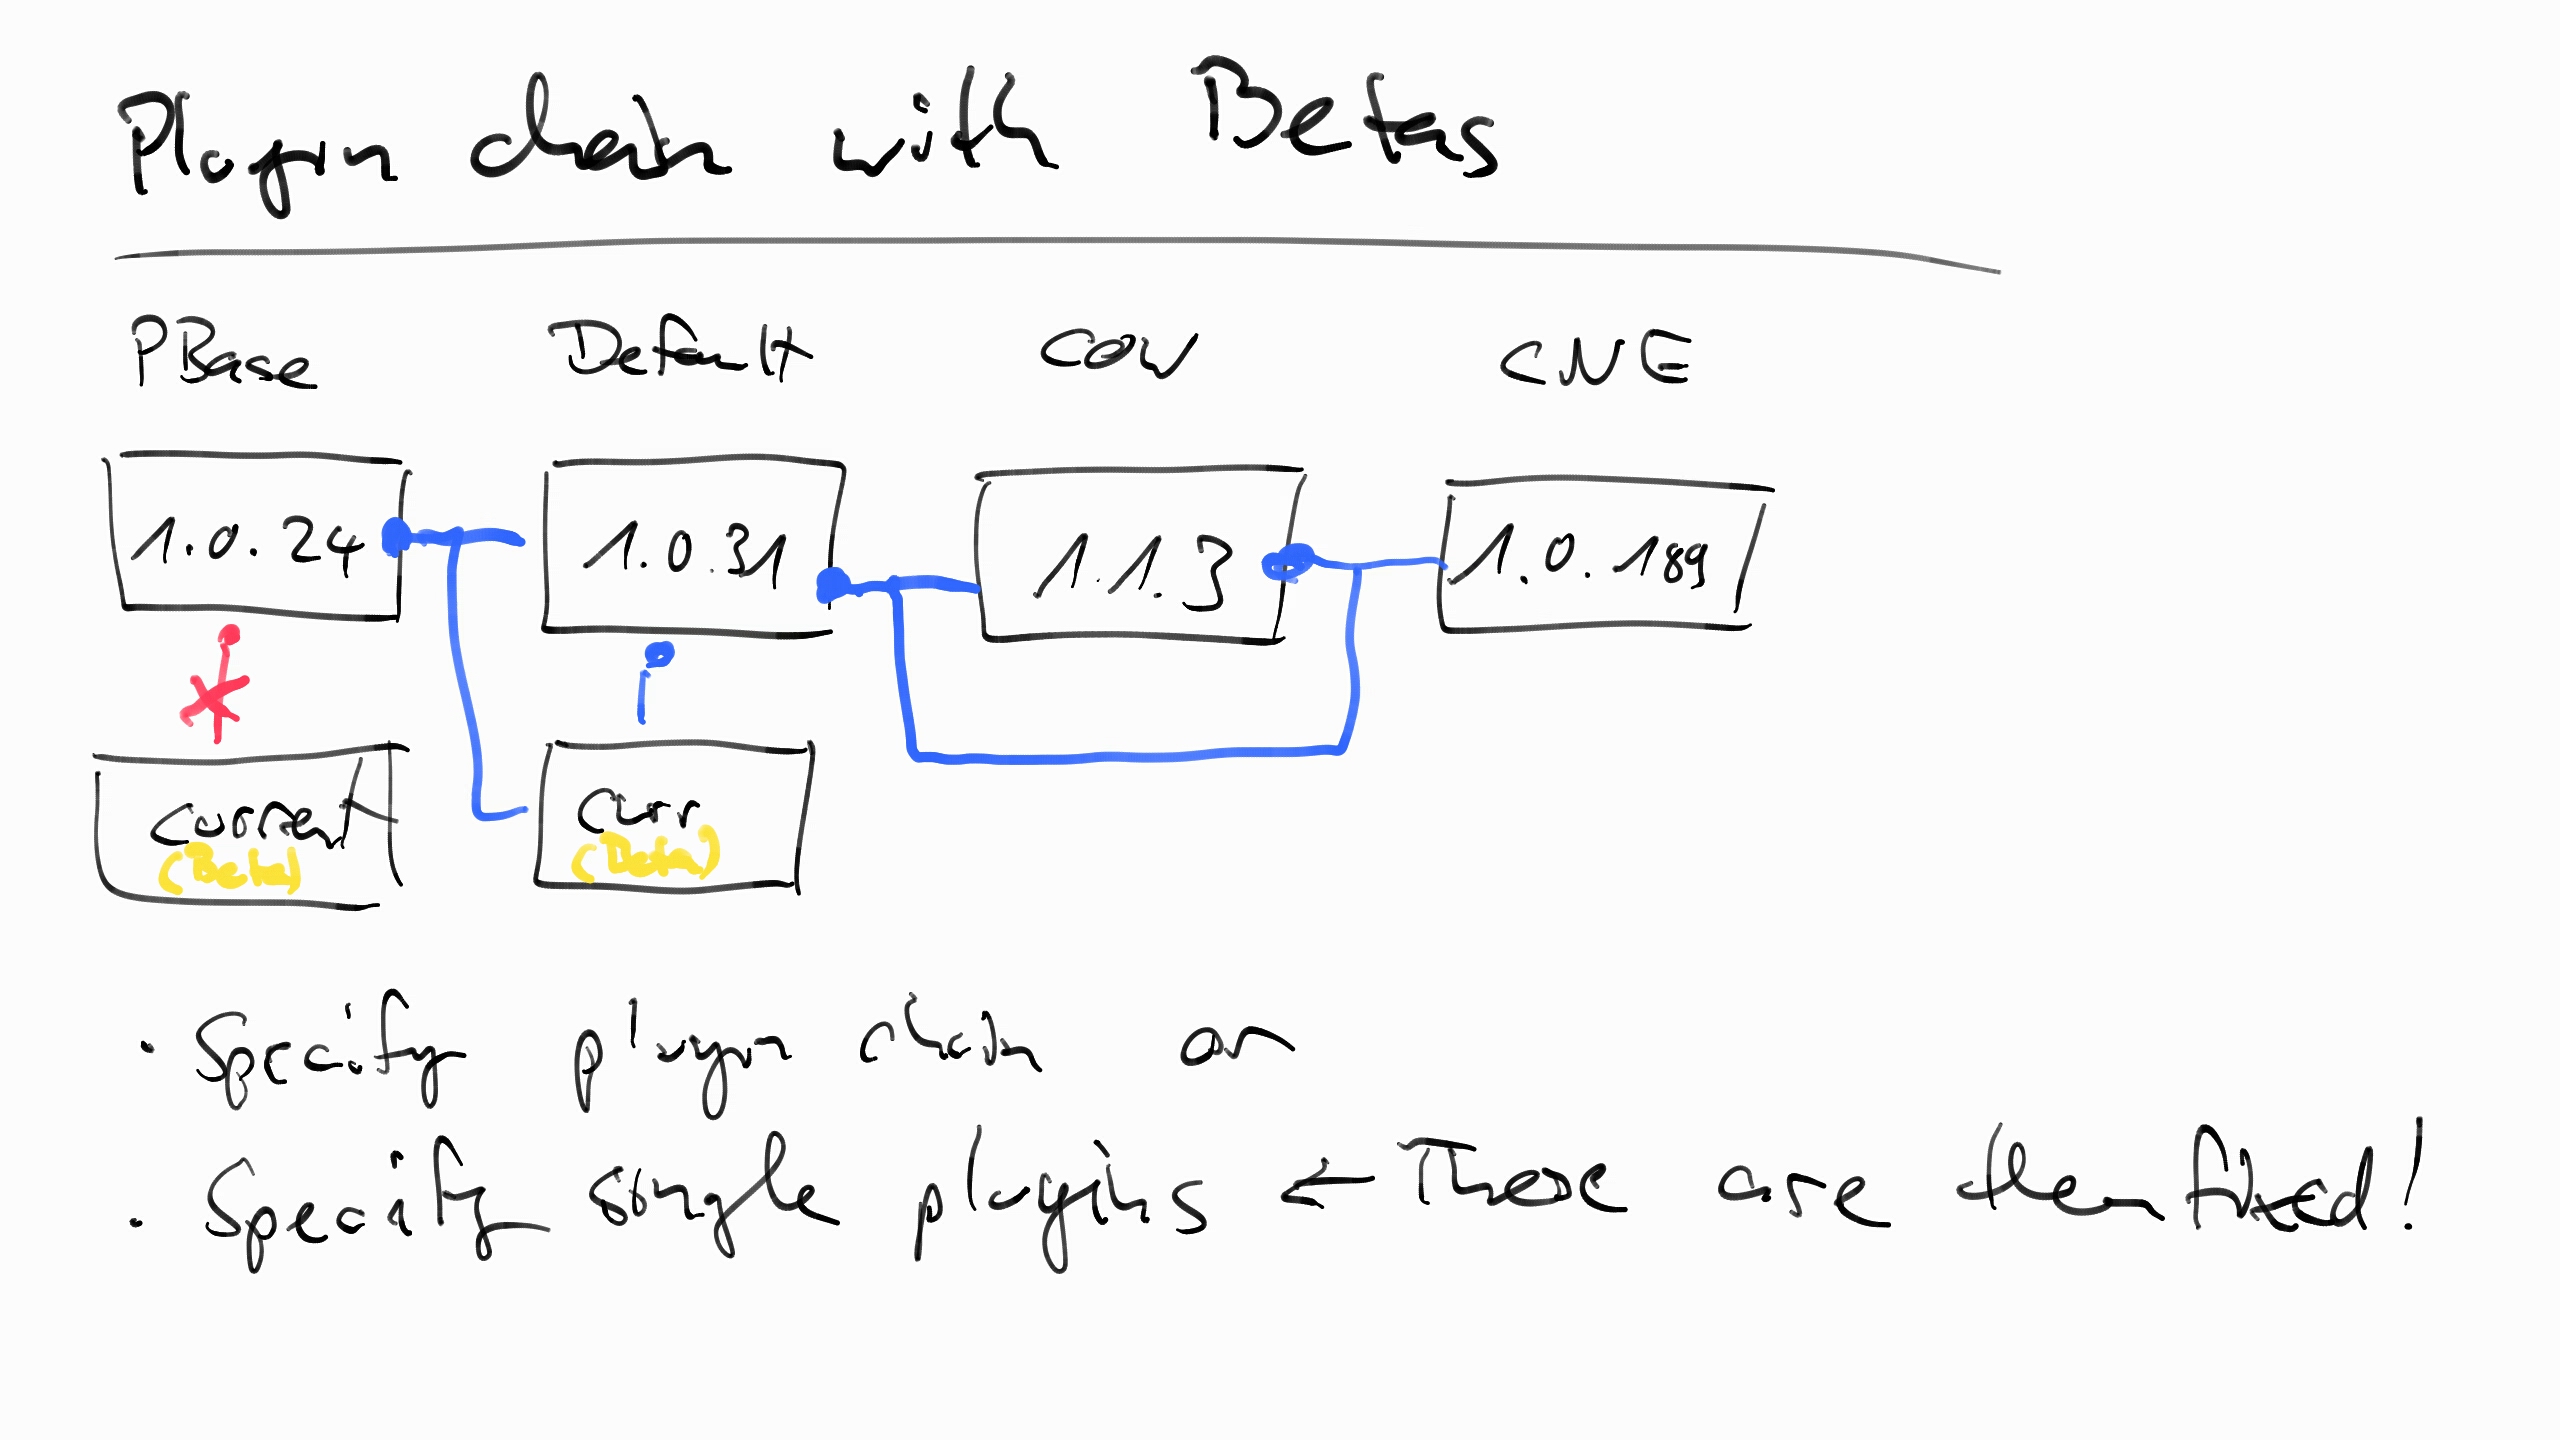 Plugin chain with Betas
PBase Default COV CNE
1.0.24 1.0.31 1.1.3 1.0.189
current curr
(Beta) (Beta)
· Specify plugin chain or
· Specify single plugins ← These are then fixed!